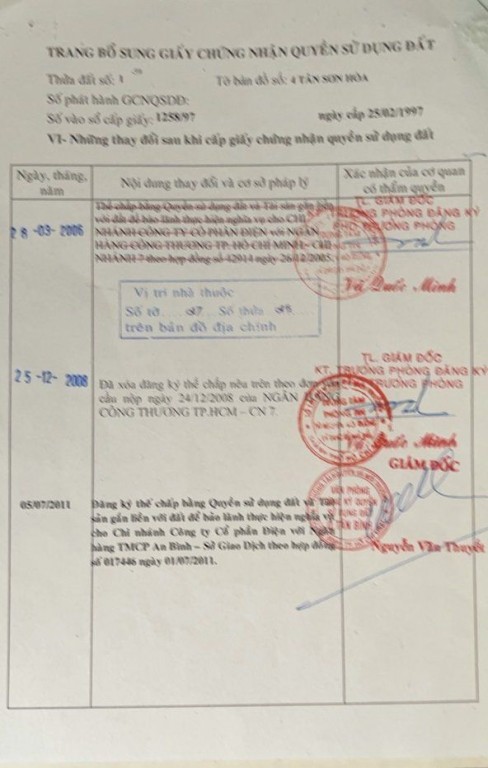 TRANG BỔ SUNG GIẤY CHỨNG NHẬN QUYỀN SỬ DỤNG ĐẤT
Thửa đất số: 1 Tờ bản đồ số: 4 TÂN SƠN HÒA
Số phát hành GCNQSDĐ:
Số vào sổ cấp giấy: 1258/97 ngày cấp 25/02/1997
VI- Những thay đổi sau khi cấp giấy chứng nhận quyền sử dụng đất
Ngày, tháng, năm
Nội dung thay đổi và cơ sở pháp lý
Xác nhận của cơ quan có thẩm quyền
28-03-2006
Thế chấp bằng Quyền sử dụng đất và Tài sản gắn liền
với đất để bảo lãnh thực hiện nghĩa vụ cho CHI
NHÁNH CÔNG TY CỔ PHẦN ĐIỆN với NGÂN
HÀNG CÔNG THƯƠNG TP.HỒ CHÍ MINH - CHI
NHÁNH 7 theo hợp đồng số 42914 ngày 26/12/2005.
TL. GIÁM ĐỐC
KT. TRƯỞNG PHÒNG ĐĂNG KÝ
PHÓ TRƯỞNG PHÒNG
Vũ Quốc Minh
Vị trí nhà thuộc
Số tờ Số thửa
trên bản đồ địa chính
25-12-2008
Đã xóa đăng ký thế chấp nêu trên theo đơn yêu
cầu nộp ngày 24/12/2008 của NGÂN HÀNG
CÔNG THƯƠNG TP.HCM – CN 7.
TL. GIÁM ĐỐC
KT. TRƯỞNG PHÒNG ĐĂNG KÝ
PHÓ TRƯỞNG PHÒNG
Vũ Quốc Minh
05/07/2011
Đăng ký thế chấp bằng Quyền sử dụng đất và Tài
sản gắn liền với đất để bảo lãnh thực hiện nghĩa vụ
cho Chi nhánh Công ty Cổ phần Điện với Ngân
hàng TMCP An Bình – Sở Giao Dịch theo hợp đồng
số 017446 ngày 01/07/2011.
GIÁM ĐỐC
VĂN PHÒNG
ĐĂNG KÝ QUYỀN
SỬ DỤNG ĐẤT
TÂN BÌNH
Nguyễn Văn Thuyết